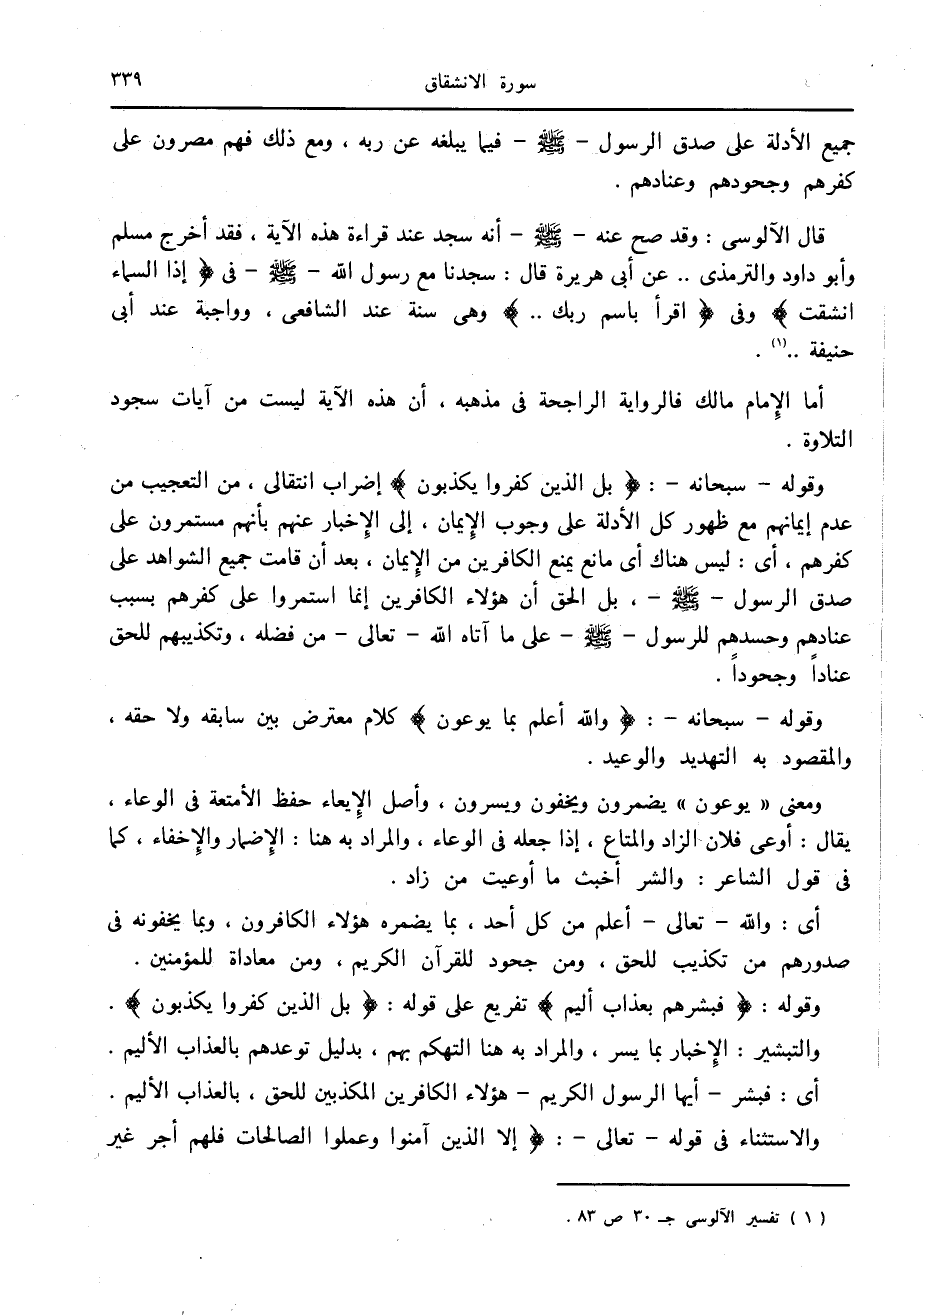 سورة الانشقاق ٣٣٩
جميع الأدلة على صدق الرسول - ﷺ - فيما يبلغه عن ربه ، ومع ذلك فهم مصرون على
كفرهم وجحودهم وعنادهم .
قال الآلوسى : وقد صح عنه - ﷺ - أنه سجد عند قراءة هذه الآية ، فقد أخرج مسلم
وأبو داود والترمذى .. عن أبى هريرة قال : سجدنا مع رسول الله - ﷺ - فى ﴿ إذا السماء
انشقت ﴾ وفى ﴿ اقرأ باسم ربك .. ﴾ وهى سنة عند الشافعى ، وواجبة عند أبى
حنيفة ..(١) .
أما الإمام مالك فالرواية الراجحة فى مذهبه ، أن هذه الآية ليست من آيات سجود
التلاوة .
وقوله - سبحانه - : ﴿ بل الذين كفروا يكذبون ﴾ إضراب انتقالى ، من التعجيب من
عدم إيمانهم مع ظهور كل الأدلة على وجوب الإيمان ، إلى الإخبار عنهم بأنهم مستمرون على
كفرهم ، أى : ليس هناك أى مانع يمنع الكافرين من الإيمان ، بعد أن قامت جميع الشواهد على
صدق الرسول - ﷺ - ، بل الحق أن هؤلاء الكافرين إنما استمروا على كفرهم بسبب
عنادهم وحسدهم للرسول - ﷺ - على ما آتاه الله - تعالى - من فضله ، وتكذيبهم للحق
عناداً وجحوداً .
وقوله - سبحانه - : ﴿ والله أعلم بما يوعون ﴾ كلام معترض بين سابقه ولا حقه ،
والمقصود به التهديد والوعيد .
ومعنى « يوعون » يضمرون ويخفون ويسرون ، وأصل الإيعاء حفظ الأمتعة فى الوعاء ،
يقال : أوعى فلان الزاد والمتاع ، إذا جعله فى الوعاء ، والمراد به هنا : الإضمار والإخفاء ، كما
فى قول الشاعر : والشر أخبث ما أوعيت من زاد .
أى : والله - تعالى - أعلم من كل أحد ، بما يضمره هؤلاء الكافرون ، وبما يخفونه فى
صدورهم من تكذيب للحق ، ومن جحود للقرآن الكريم ، ومن معاداة للمؤمنين .
وقوله : ﴿ فبشرهم بعذاب أليم ﴾ تفريع على قوله : ﴿ بل الذين كفروا يكذبون ﴾ .
والتبشير : الإخبار بما يسر ، والمراد به هنا التهكم بهم ، بدليل توعدهم بالعذاب الأليم .
أى : فبشر - أيها الرسول الكريم - هؤلاء الكافرين المكذبين للحق ، بالعذاب الأليم .
والاستثناء فى قوله - تعالى - : ﴿ إلا الذين آمنوا وعملوا الصالحات فلهم أجر غير
( ١ ) تفسير الآلوسى جـ ٣٠ ص ٨٣ .